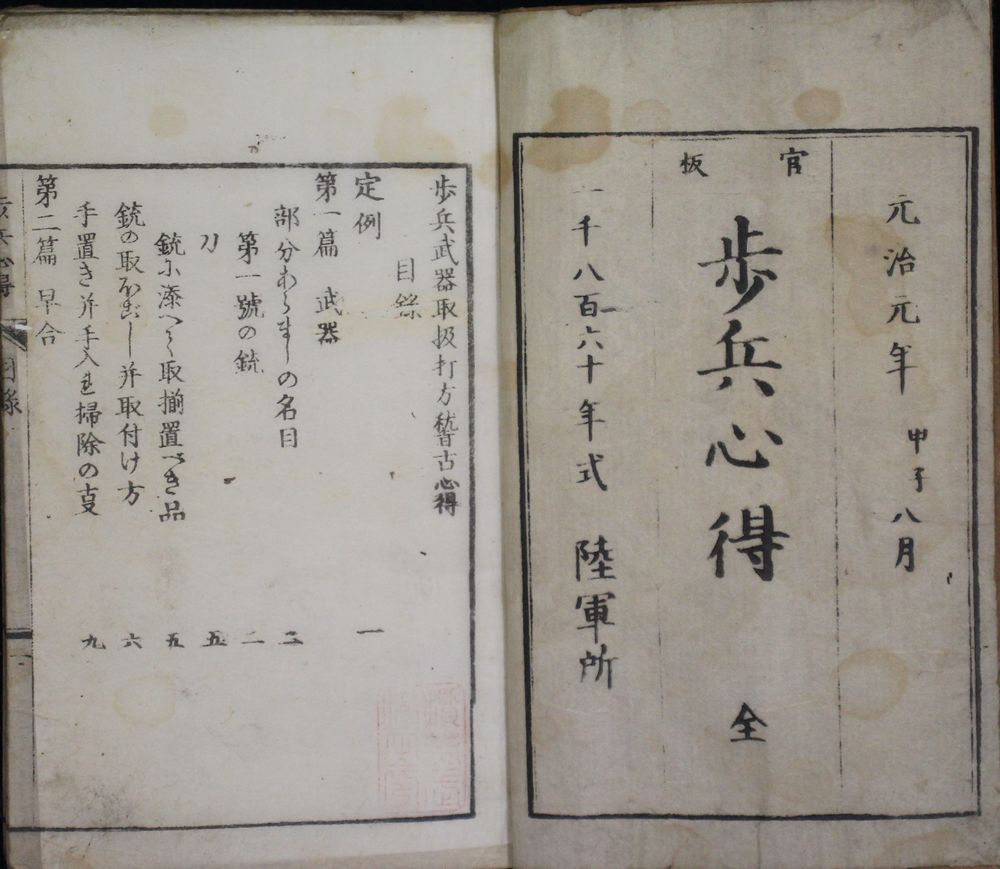 官板
元治元年 甲子八月
歩兵心得 全
一千八百六十年式 陸軍所
歩兵武器取扱打方稽古心得
目録
定例 一
第一篇 武器
部分あらましの名目 二
第一號の銃 二
刀 五
銃に添へて取揃置べき品 五
銃の取ほごし并取付け方 六
手置き并手入れ掃除の事 九
第二篇 早合
歩兵心得 目録